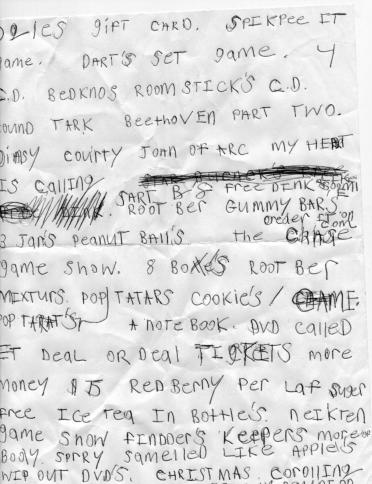 gles gift CARD. SPIKPEE IT
game. DART'S SET game. 4
C.D. BEDKNOS ROOM STICK'S C.D.
OUND TARK BEETHOVEN PART TWO.
COUrTY JOAN OF ARC MY HERT
IS CALLING
SART FREE DINK
ROOT Ber GUMMY BARS
Order IT ON
3 JAR'S PEANUT BALL'S. the CHASE
game SHOW. 8 BOXES ROOT Ber
MIXTURS. POP TATARS COOKIE'S /
POP TARAT'S A NOTE BOOK. DVD CALLED
ET DEAL OR DEAL TICKETS more
MONEY $ 15 RED BERRY PER LAF Suger
Free ICE TEA IN BOTTLE'S. NEIKTEN
game SHOW FINDDER'S KEEPERS more
BODY SPRRY SAMELLED LIKE APPLE'S
WIP OUT DVD'S. CHRISTMAS COROLLING